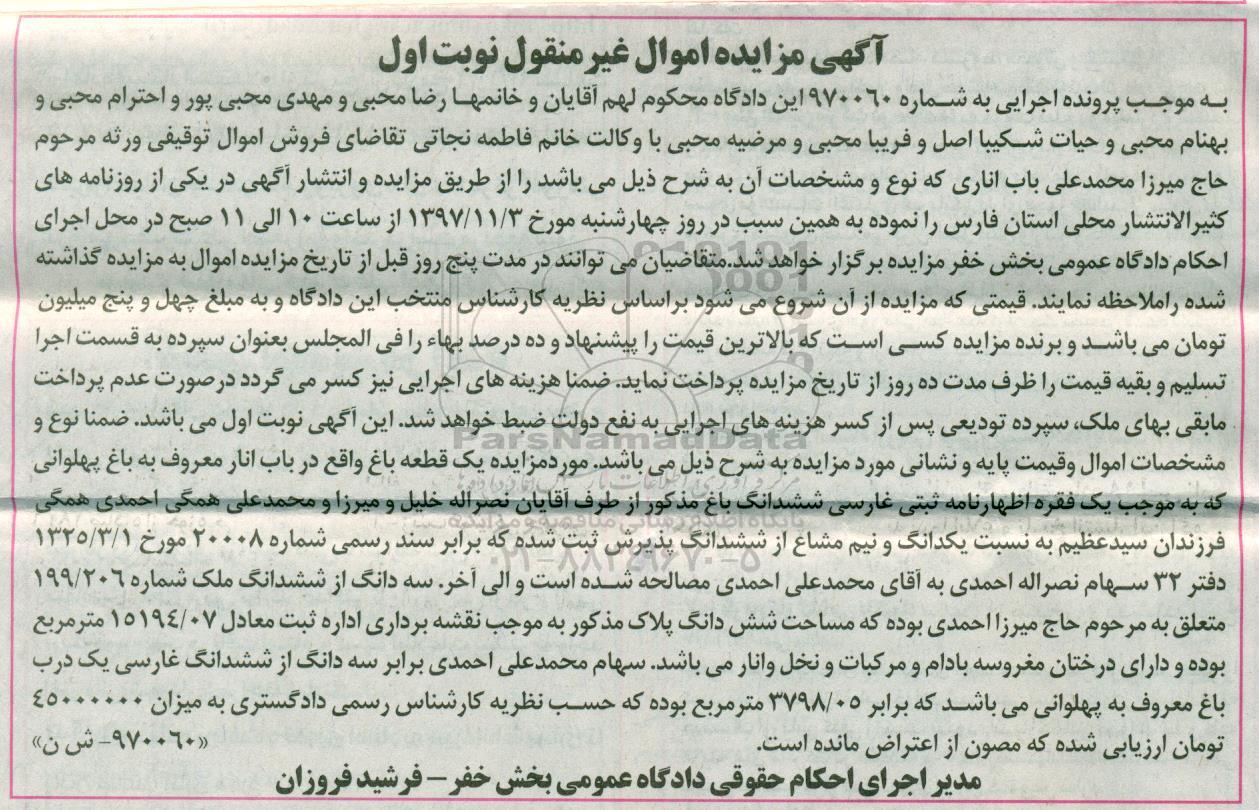 آگهی مزایده اموال غیر منقول نوبت اول
به موجب پرونده اجرایی به شماره ۹۷۰۰۶۰ این دادگاه محکوم لهم آقایان و خانمها رضا محبی و مهدی محبی پور و احترام محبی و
بهنام محبی و حیات شکیبا اصل و فریبا محبی و مرضیه محبی با وکالت خانم فاطمه نجاتی تقاضای فروش اموال توقیفی ورثه مرحوم
حاج میرزا محمدعلی باب اناری که نوع و مشخصات آن به شرح ذیل می باشد را از طریق مزایده و انتشار آگهی در یکی از روزنامه های
کثیرالانتشار محلی استان فارس را نموده به همین سبب در روز چهارشنبه مورخ ۱۳۹۷/۱۱/۳ از ساعت ۱۰ الی ۱۱ صبح در محل اجرای
احکام دادگاه عمومی بخش خفر مزایده برگزار خواهد شد.متقاضیان می توانند در مدت پنج روز قبل از تاریخ مزایده اموال به مزایده گذاشته
شده راملاحظه نمایند. قیمتی که مزایده از آن شروع می شود براساس نظریه کارشناس منتخب این دادگاه و به مبلغ چهل و پنج میلیون
تومان می باشد و برنده مزایده کسی است که بالاترین قیمت را پیشنهاد و ده درصد بهاء را فی المجلس بعنوان سپرده به قسمت اجرا
تسلیم و بقیه قیمت را ظرف مدت ده روز از تاریخ مزایده پرداخت نماید. ضمنا هزینه های اجرایی نیز کسر می گردد درصورت عدم پرداخت
مابقی بهای ملک، سپرده تودیعی پس از کسر هزینه های اجرایی به نفع دولت ضبط خواهد شد. این آگهی نوبت اول می باشد. ضمنا نوع و
مشخصات اموال وقیمت پایه و نشانی مورد مزایده به شرح ذیل می باشد. موردمزایده یک قطعه باغ واقع در باب انار معروف به باغ پهلوانی
که به موجب یک فقره اظهارنامه ثبتی غارسی ششدانگ باغ مذکور از طرف آقایان نصراله خلیل و میرزا و محمدعلی همگی احمدی همگی
فرزندان سیدعظیم به نسبت یکدانگ و نیم مشاع از ششدانگ پذیرش ثبت شده که برابر سند رسمی شماره ۲۰۰۰۸ مورخ ۱۳۲۵/۳/۱
دفتر ۳۲ سهام نصراله احمدی به آقای محمدعلی احمدی مصالحه شده است و الی آخر. سه دانگ از ششدانگ ملک شماره ۱۹۹/۲۰۶
متعلق به مرحوم حاج میرزا احمدی بوده که مساحت شش دانگ پلاک مذکور به موجب نقشه برداری اداره ثبت معادل ۱۵۱۹۴/۰۷ مترمربع
بوده و دارای درختان مغروسه بادام و مرکبات و نخل وانار می باشد. سهام محمدعلی احمدی برابر سه دانگ از ششدانگ غارسی یک درب
باغ معروف به پهلوانی می باشد که برابر ۳۷۹۸/۰۵ مترمربع بوده که حسب نظریه کارشناس رسمی دادگستری به میزان ۴۵۰۰۰۰۰۰۰
تومان ارزیابی شده که مصون از اعتراض مانده است. «۹۷۰۰۶۰- ش ن»
مدیر اجرای احکام حقوقی دادگاه عمومی بخش خفر – فرشید فروزان
ParsNamadData
پایگاه اطلاع رسانی مناقصه و مزایده
۰۲۱-۸۸۳۴۹۶۷۰-۵